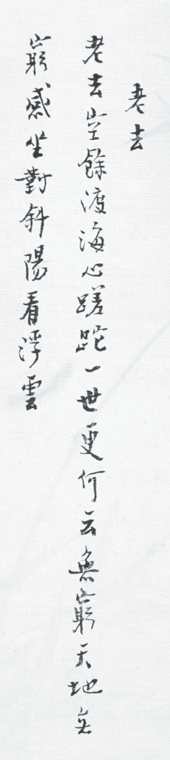 老去
老去空餘渡海心蹉跎一世更何云無窮天地無
窮感坐對斜陽看浮雲